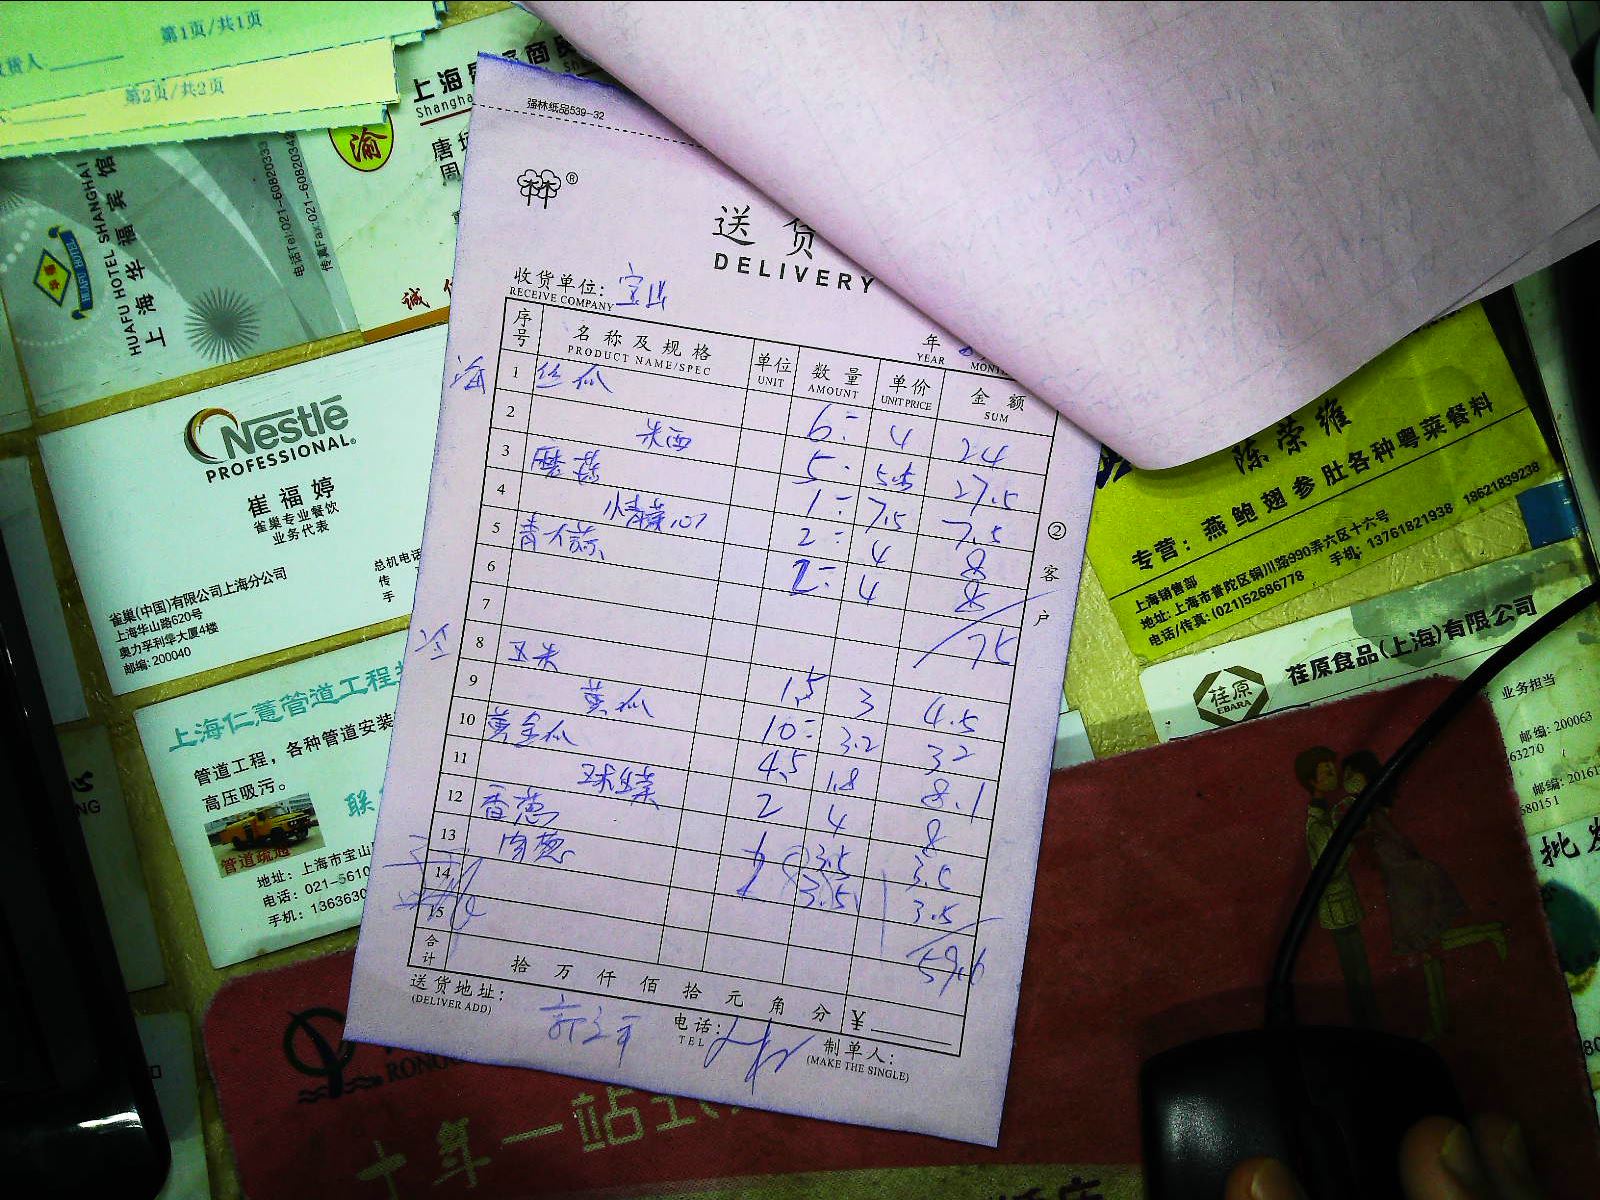 第1页/共1页
货人
第2页/共2页
HUAFU HOTEL
HUAFU HOTEL SHANGHAI
上海华福宾馆
电话Tel:021-60820333
传真Fax:021-6082034
渝
上海
商
Shangha
唐
周
诚
Nestlé
PROFESSIONAL®
崔福婷
雀巢专业餐饮
业务代表
总机电话
传
手
雀巢(中国)有限公司上海分公司
上海华山路620号
奥力孚利华大厦4楼
邮编: 200040
上海仁薏管道工程
管道工程, 各种管道安装
高压吸污。
联
管道疏通
地址: 上海市宝山
电话: 021-5610
手机: 1363630
强林纸品539-32
®
送货
DELIVERY
收货单位: 宝山
RECEIVE COMPANY
年
YEAR
MONTH
序号 名称及规格 单位 数量 单价 金额
PRODUCT NAME/SPEC UNIT AMOUNT UNIT PRICE SUM
海
1 丝瓜 6 4 24
2 米西 5 5.5 27.5
3 蘑菇 1 7.5 7.5
4 2 4 8
5 2 4 8
6 75
7
8 玉米 1.5 3 4.5
9 黄瓜 10 3.2 32
10 黄金瓜 4.5 1.8 8.1
11 球生菜 2 4 8
12 香葱 1 3.5 3.5
13 1 3.5 3.5
14
15 59.6
合计 拾万仟佰拾元角分 ¥
②客户
送货地址:
(DELIVER ADD)
电话:
TEL
制单人:
(MAKE THE SINGLE)
陈荣维
专营: 燕鲍翅参肚各种粤菜餐料
上海销售部
地址: 上海市普陀区铜川路990弄六区十六号
电话/传真: (021)52686778 手机: 13761821938 18621839238
荏原
EBARA
荏原食品(上海)有限公司
业务担当
邮编: 200063
63270
邮编: 20161
680151
批发
RONG
十年一站